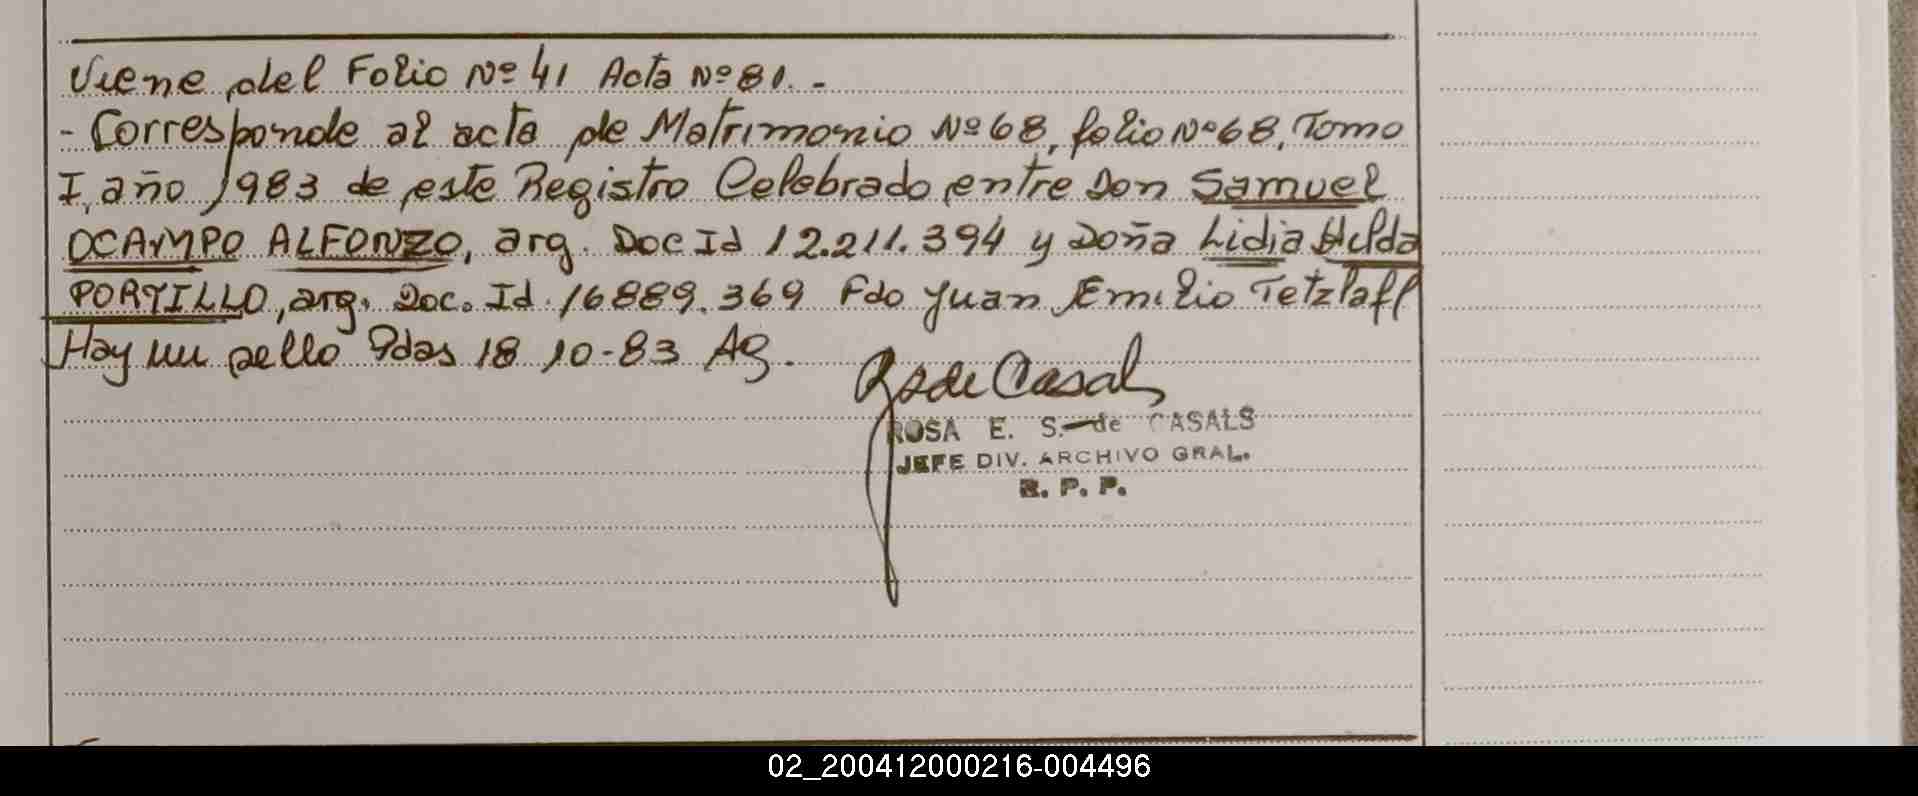 Viene del Folio Nº 41 Acta Nº 81. -
- Corresponde al acta de Matrimonio Nº 68, folio Nº 68, Tomo
I, año 1983 de este Registro Celebrado entre Don Samuel
OCAMPO ALFONZO, arg. Doc Id 12.211.394 y Doña Lidia Hilda
PORTILLO, arg. Doc. Id. 16889.369 Fdo Juan Emilio Tetzlaff
Hay un sello Pdas 18 10-83 AG.
RSde Casals
ROSA E. S. de CASALS
JEFE DIV. ARCHIVO GRAL.
R. P. P.
02_200412000216-004496